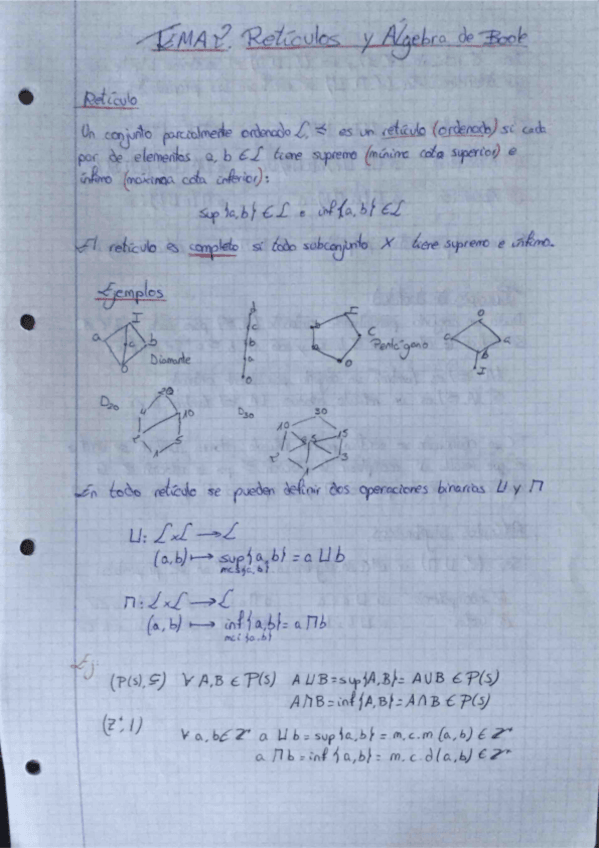 TEMA 2. Retículos y Álgebra de Boole
Retículo
Un conjunto parcialmente ordenado L, ≼ es un retículo (ordenado) si cada
par de elementos a, b ∈ L tiene supremo (mínima cota superior) e
ínfimo (máxima cota inferior):
sup{a,b} ∈ L e inf{a,b} ∈ L
El retículo es completo si todo subconjunto X tiene supremo e ínfimo.
Ejemplos
I
a c b
0
Diamante
c
b
a
0
I
b
a
c
0
Pentágono
0
c a
b
I
D20
20
4 10
2 5
1
D30
30
10 15
5
2 3
1
En todo retículo se pueden definir dos operaciones binarias ⊔ y ⊓
⊔: L×L → L
(a,b) ↦ sup{a,b} = a ⊔ b
mcs{a,b}
⊓: L×L → L
(a,b) ↦ inf{a,b} = a ⊓ b
mci{a,b}
Ej
(P(S), ⊆) ∀ A,B ∈ P(S) A⊔B = sup{A,B} = A∪B ∈ P(S)
A⊓B = inf{A,B} = A∩B ∈ P(S)
(Z⁺, |) ∀ a,b ∈ Z⁺ a ⊔ b = sup{a,b} = m.c.m (a,b) ∈ Z⁺
a ⊓ b = inf{a,b} = m.c.d (a,b) ∈ Z⁺